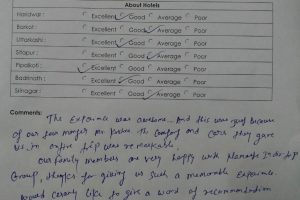 About Hotels
Haridwar : Excellent Good Average Poor
Barkot : Excellent Good Average Poor
Uttarkashi : Excellent Good Average Poor
Sitapur : Excellent Good Average Poor
Pipalkoti : Excellent Good Average Poor
Badrinath : Excellent Good Average Poor
Srinagar : Excellent Good Average Poor
Comments:
The Experience was awesome. And this was just because
of our tour manager Mr. The Comfort and Care they gave
us in entire trip was remarkable.
Our family members are very happy with
Group, thanks for giving us such a memorable Experience.
would like to give a word of recommendation